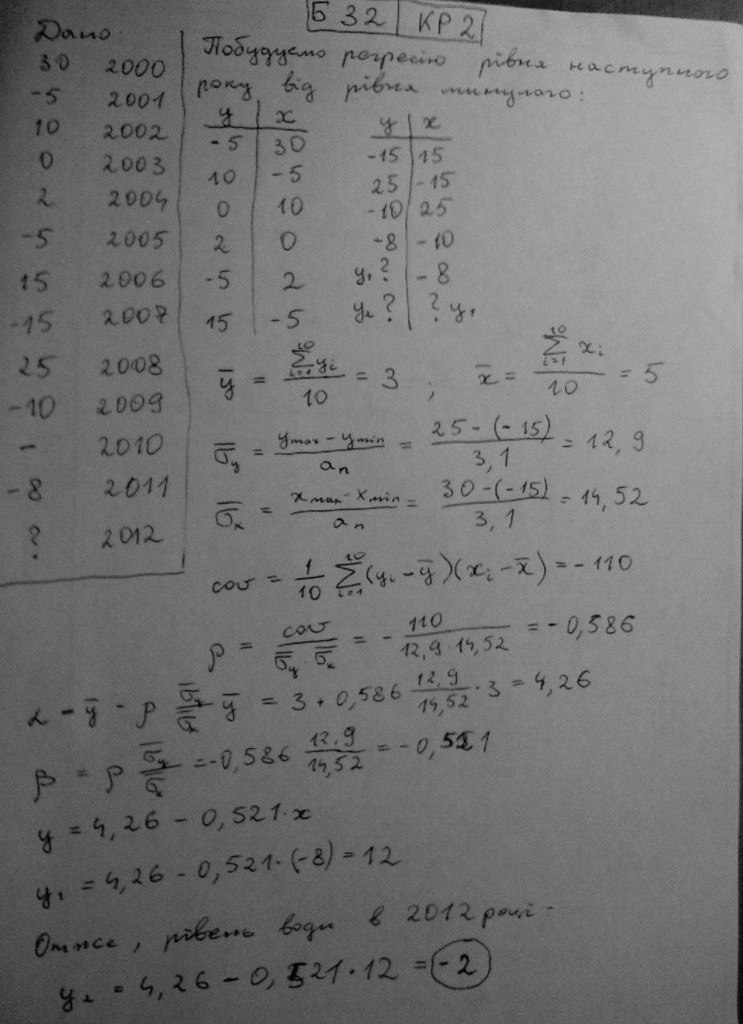 Б 32 | КР 2
Дано:
30 2000
-5 2001
10 2002
0 2003
2 2004
-5 2005
15 2006
-15 2007
25 2008
-10 2009
- 2010
-8 2011
? 2012
Побудуємо регресію рівня наступного
року від рівня минулого:
y | x
-5 | 30
10 | -5
0 | 10
2 | 0
-5 | 2
15 | -5
y | x
-15 | 15
25 | -15
-10 | 25
-8 | -10
y₁ ? | -8
y₂ ? | ? y₁
ȳ = Σᵢ₌₁¹⁰ yᵢ / 10 = 3 ; x̄ = Σᵢ₌₁¹⁰ xᵢ / 10 = 5
σ̄_y = (y_max - y_min) / a_n = (25 - (-15)) / 3,1 = 12,9
σ̄_x = (x_max - x_min) / a_n = (30 - (-15)) / 3,1 = 14,52
cov = 1/10 Σᵢ₌₁¹⁰ (yᵢ - ȳ)(xᵢ - x̄) = -110
ρ = cov / (σ̄_y σ̄_x) = - 110 / (12,9 · 14,52) = -0,586
α - ȳ - ρ σ̄_y / σ̄_x ȳ = 3 + 0,586 12,9 / 14,52 · 3 = 4,26
β = ρ σ̄_y / σ̄_x = -0,586 12,9 / 14,52 = -0,521
y = 4,26 - 0,521 · x
y₁ = 4,26 - 0,521 · (-8) = 12
Отже, рівень води в 2012 році -
y₂ = 4,26 - 0,521 · 12 = -2